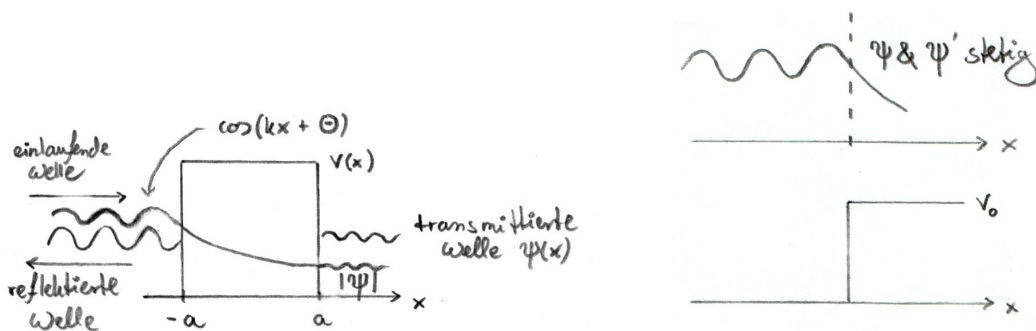 cos(kx + Θ)
einlaufende
Welle
V(x)
transmittierte
Welle ψ(x)
|ψ|
reflektierte
Welle
-a
a
x
ψ & ψ' stetig
x
V₀
x